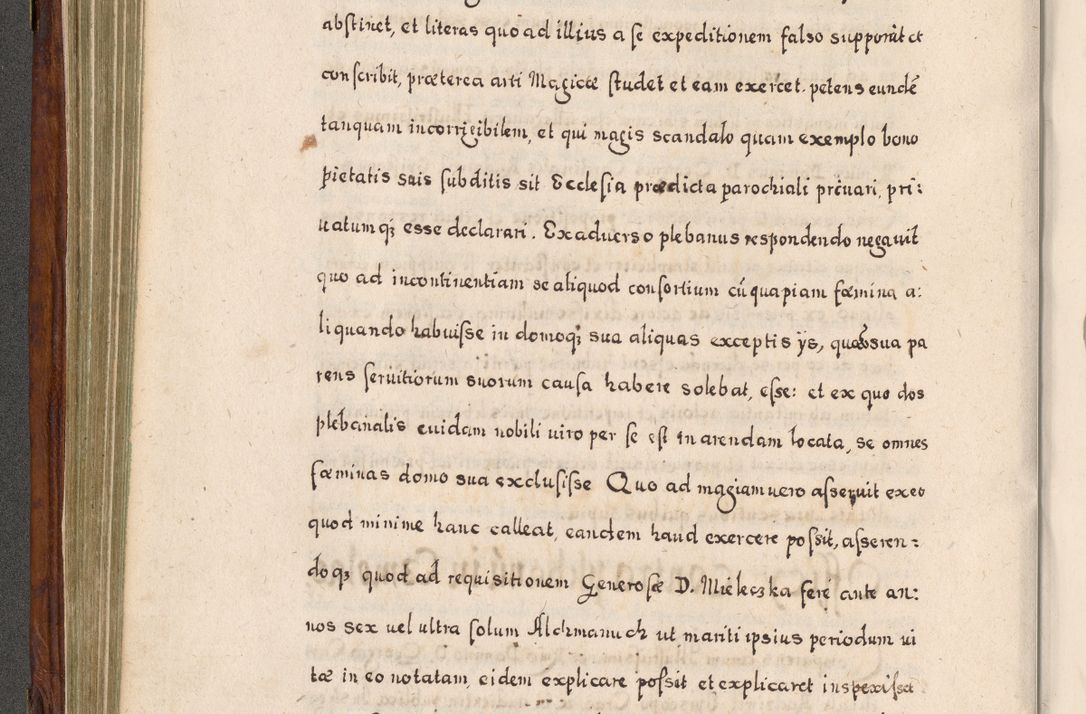 abstinet, et literas quo ad illius a se expeditionem falso supponit et
conscribit, præterea arti Magicæ studet et eam exercet. petens eundē
tanquam incorrigibilem, et qui magis scandalo quam exemplo bono
pietatis suis subditis sit Ecclesia prædicta parochiali priuari, pri:
uatumq; esse declarari. Ex aduerso plebanus respondendo negauit
quo ad incontinentiam se aliquod consortium cū quapiam fœmina a:
liquando habuisse in domoq; sua aliquas exceptis ijs, quas sua pa
rens seruitiorum suorum causa habere solebat, esse: et ex quo dos
plebanalis cuidam nobili uiro per se est in arendam locata, se omnes
fœminas domo sua exclusisse Quo ad magiam uero asseruit ex eo
quod minime hanc calleat, eandem haud exercere possit, asseren:
doq; quod ad requisitionem Generosæ D. Mieleczka fere ante an:
nos sex uel ultra solum Alchmanuch ut mariti ipsius periodum ui
tæ in eo notatam, eidem explicare posset et explicaret inspexisset